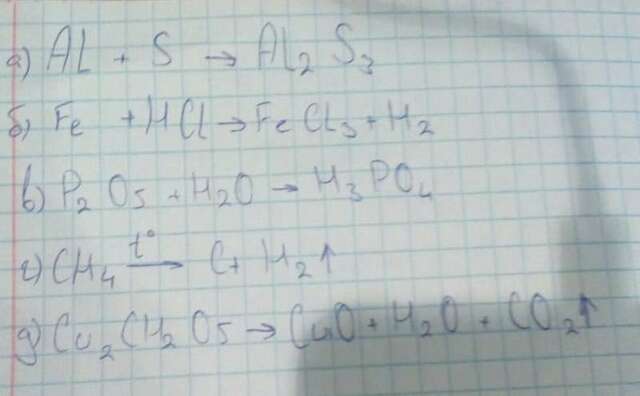 а) Al + S → Al₂ S₃
б) Fe + HCl → FeCl₃ + H₂
в) P₂ O₅ + H₂O → H₃PO₄
г) CH₄ t° → C + H₂↑
д) Cu₂CH₂O₅ → CuO + H₂O + CO₂↑